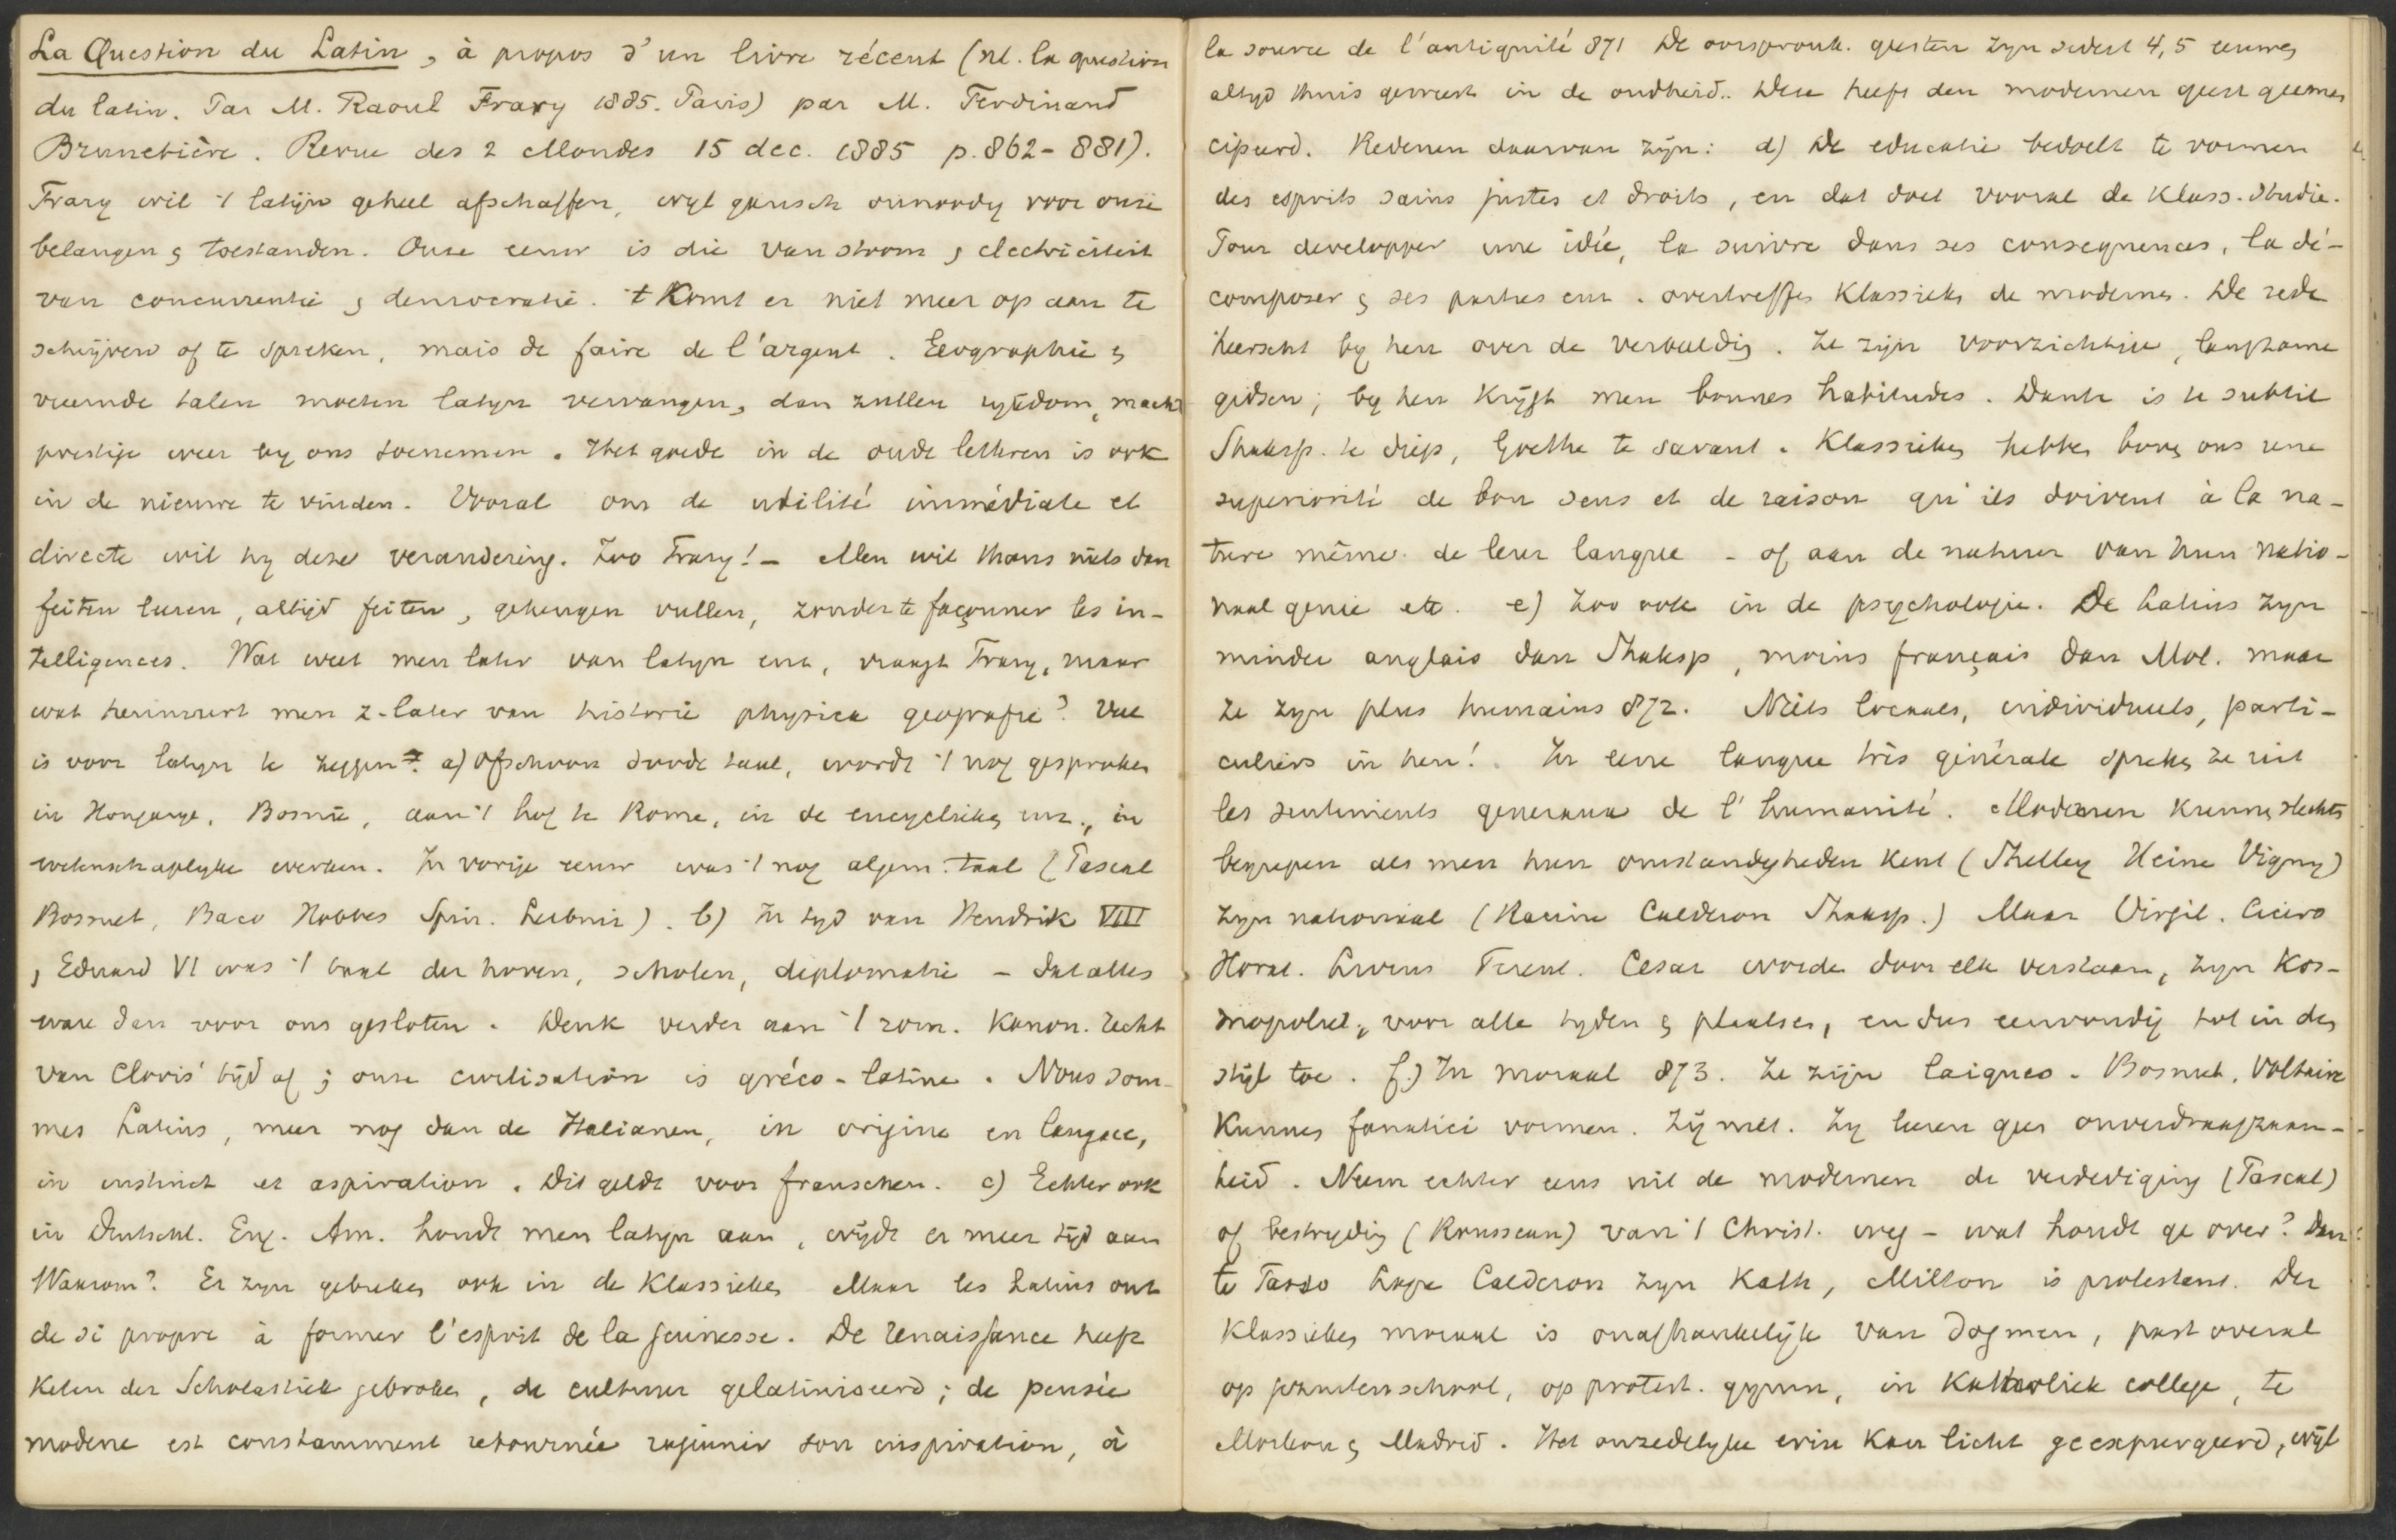 La Question du Latin, à propos d'un livre récent (nl. la question
du latin. Par M. Raoul Frary 1885. Paris) par M. Ferdinand
Brunetière. Revue des 2 Mondes 15 dec. 1885 p. 862-881).
Frary wil 't latijn geheel afschaffen, wyl gansch onnoodig voor onze
belangen & toestanden. Onze eeuw is die van stoom & electriciteit
van concurrentie & democratie. 't Komt er niet meer op aan te
schrijven of te spreken, mais de faire de l'argent. Geographie &
vreemde talen moeten latyn vervangen, dan zullen rijkdom, macht
prestige weer by ons toenemen. Het goede in de oude letteren is ook
in de nieuwe te vinden. Vooral om de utilité immédiate et
directe wil hy deze verandering. Zoo Frary! - Men wil thans niets dan
feiten leeren, altijd feiten, geheugen vullen, zonder te façonner les in-
telligences. Wat weet men later van latyn enz, vraagt Frary, maar
wat herinnert men z. later van historie physica geografie? Wat
is voor latyn te zeggen? a) ofschoon doode taal, wordt 't nog gesproken
in Hongarye, Bosnië, aan 't hof te Rome, in de encyclieken enz., in
wetenschaplyke werken. In vorige eeuw was 't nog algem. taal (Pascal
Bossuet, Baco Hobbes Spin. Leibniz). b) In tyd van Hendrik VIII
& Eduard VI was 't taal der hoven, scholen, diplomatie - dat alles
ware dan voor ons gesloten. Denk verder aan 't rom. kanon. recht
van Clovis' tijd af; onze civilisation is gréco-latine. Nous som-
mes Latins, meer nog dan de Italianen, in origine en langue,
in instinct et aspiration. Dit geldt voor franschen. c) Echter ook
in Duitschl. Eng. Am. houdt men latyn aan, wijdt er meer tijd aan
Waarom? Er zyn gebreken ook in de klassieken Maar les Latins ont
de si propre à former l'esprit de la jeunesse. De renaissance heeft
keten der Scholastiek gebroken, de cultuur gelatiniseerd; de pensée
moderne est constamment retournée rajeunir son inspiration, à
la source de l'antiquité 871 De oorspronk. geesten zyn sedert 4,5 eeuwen
altyd thuis geweest in de oudheid.. Deze heeft den modernen geest geeman
cipeerd. Redenen daarvan zijn: d) De educatie bedoelt te vormen
des esprits sains justes et droits, en dat doet vooral de klass. studie.
Pour developper une idée, la suivre dans ses consequences, la dé-
composer & ses parties enz. overtreffen klassieken de modernen. De rede
heerscht by hen over de verbeelding. Ze zijn voorzichtige, langzame
gidsen; by hen krijgt men bonnes habitudes. Dante is te subtil
Shaksp. te diep, Goethe te savant. Klassieken hebben boven ons eene
superiorité de bon sens et de raison qu'ils doivent à la na-
ture même de leur langue - of aan de natuur van hun natio-
naal genie etc. e) Zoo ook in de psychologie. De Latins zyn
minder anglais dan Shaksp, moins français dan Mol. maar
ze zyn plus humains 872. Niets locaals, individueels, parti-
culiers in hen! In eene langue très générale spreken ze uit
les sentiments generaux de l'humanité. Modernen kunnen slechts
begrepen als men hun omstandigheden kent (Shelley Heine Vigny)
zyn nationaal (Racine Calderon Shaksp.) Maar Virgil. Cicero
Horat. Livius Terent. Cesar worden door elk verstaan, zyn kos-
mopoliet, voor alle tyden & plaatsen, en dus eenvoudig tot in den
stijl toe. f.) In moraal 873. Ze zijn laiques. Bossuet, Voltaire
kunnen fanatici vormen. Zij niet. Zy leeren geen onverdraagzaam-
heid. Neem echter eens uit de modernen de verdediging (Pascal)
of bestryding (Rousseau) van 't Christ. weg - wat houdt ge over? Dan
te Tasso Lope Calderon zyn Kath, Milton is protestant. Der
klassieken moraal is onafhankelijk van dogmen, past overal
op jezuitenschool, op protest. gymn, in Katholiek college, te
Moskou & Madrid. Het onzedelyke erin kan licht geexpurgeerd, wijl